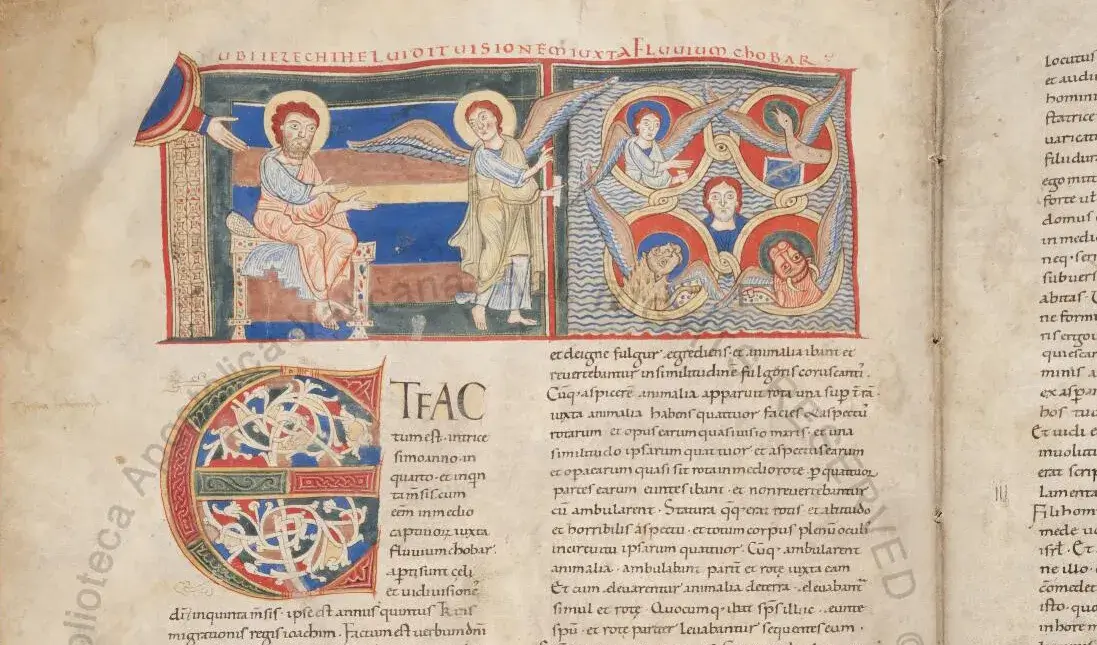 UBI IEZECHIHEL UIDIT UISIONEM IUXTA FLUUIUM CHOBAR
ET FAC
tum est. intrice
simo anno. in
quarto. et inqn
ta msis. cum
eem in medio
captiuor iuxta
fluuium chobar.
apti sunt celi
et uidi uisione
di. inquinta msis. ipse est annus quintus
migrationis regis ioachim. Factum est uerbum dni
et de igne fulgur egrediens. et animalia ibant et
reuertebantur in similitudine fulgoris coruscanti.
Cuq. aspicere animalia apparuit rota una sup tra.
iuxta animalia habens quattuor facies. & aspectu
rotarum et opus earum quasi uisio maris. et una
similitudo ipsarum quattuor. et aspectus earum
et opa earum quasi sit rota in medio rote. p quattuor
partes earum euntes ibant. et non reuertebantur
cu ambularent. Statura qq. erat rotis et altitudo
et horribilis aspectu. et totum corpus plenu oculi
in circuitu ipsarum quattuor. Cuq. ambularent
animalia. ambulabant parit et rote iuxta eam
Et cum eleuarentur animalia de terra. eleuabant
simul et rote. Quocumq. ibat sps illuc. eunte
spu. et rote pariter leuabantur sequentes eam.
locutus
et audi
homini
statrice
uaricati
filii dura
ego mitt
forte ut
domus e
in medio
neq.
subuers
abitas.
ne form
ris ergo
quiescan
minis a
ex aspar
hos tuu
Et uidi e
inuolut
erat scrip
Lamenta
Fili hom
mede uo
isrl. Et
ne illo. e
comedet
isto. quo
in hore m
Biblioteca Apostolica Vaticana
RESERVED
©